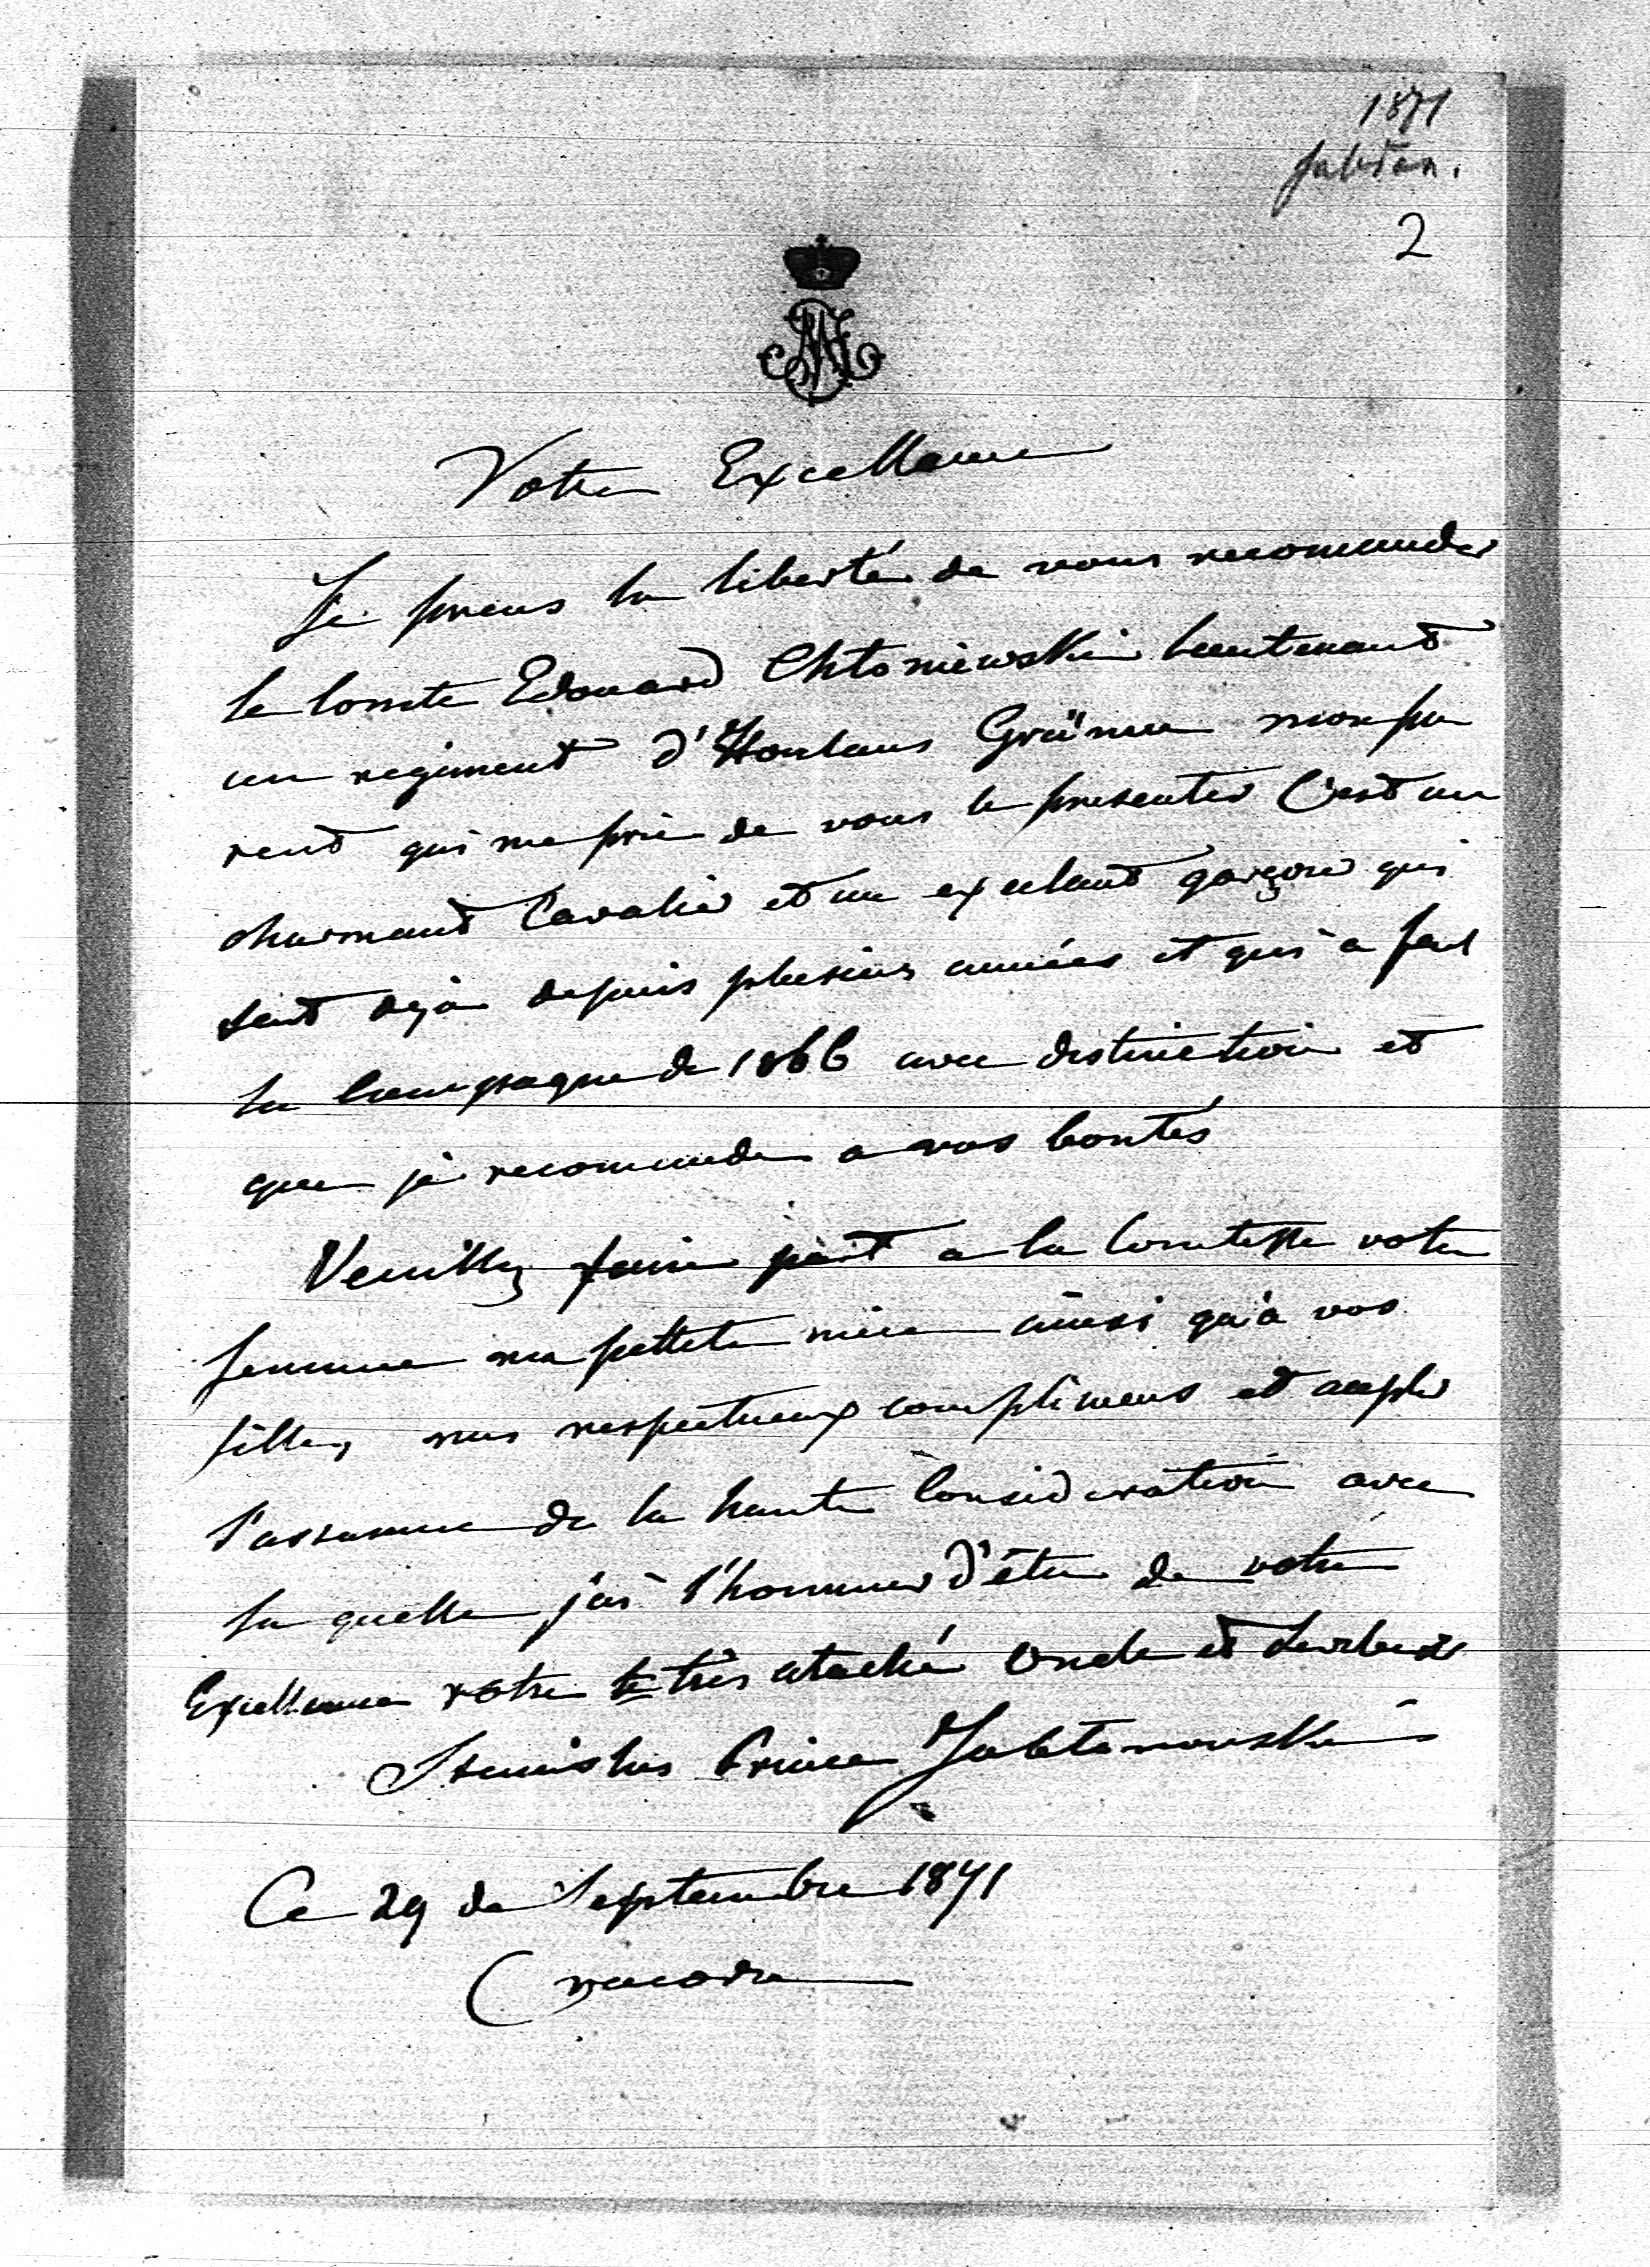 1871
Jabłon.
2
Votre Excellence
Je prens la liberté de vous recomander
le Comte Edouard Chłoniewski lieutenant
au regiment d'Houlans Grünne mon pa
rent qui me prie de vous le presenter C'est un
charmant Cavalier et un exelant garçon qui
sert dejà depuis plusieurs années et qui a fait
la Campagne de 1866 avec distinction et
que je recomande a vos bontés
Veuillez faire part a la Comtesse votre
femme ma pettite niece ainsi qu'a vos
filles, mes respectueux complimens et accepter
l'assurance de la haute Consideration avec
la quelle j'ai l'honneur d'être de votre
Excellence votre très ataché Oncle et Serviteur
Stanislas Prince Jabłonowski
Ce 29 de Septembre 1871
Cracovie